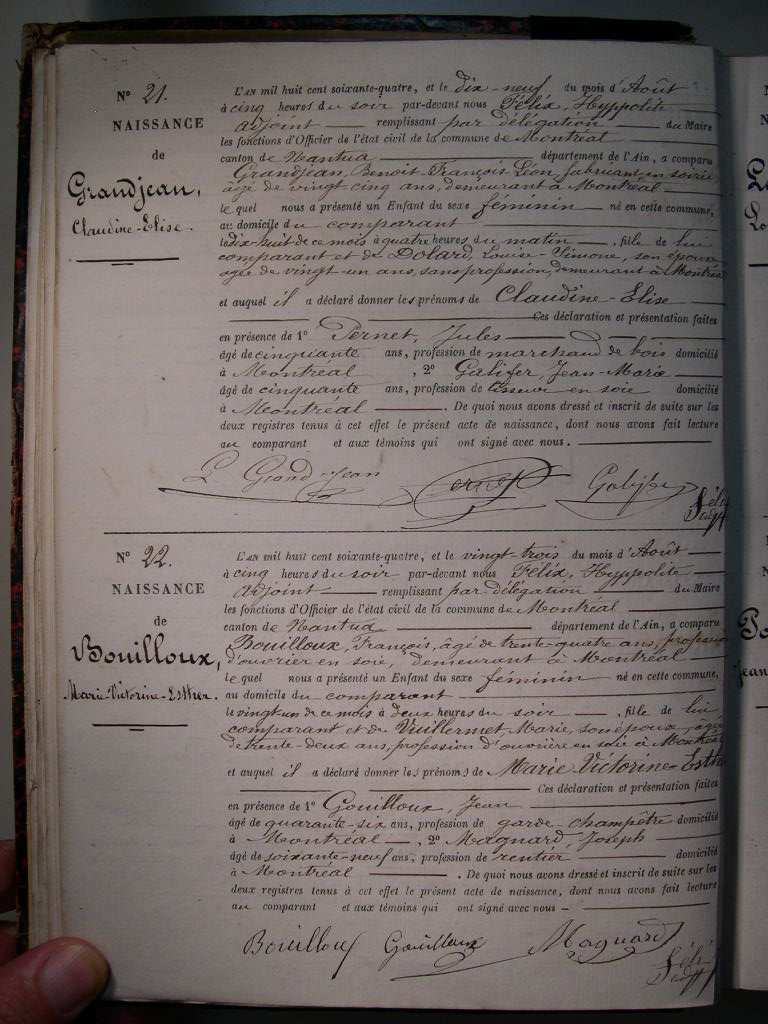 N° 21.
NAISSANCE
de
Grandjean,
Claudine-Elise.
L'AN mil huit cent soixante-quatre, et le dix-neuf du mois d'Août
à cinq heures du soir par-devant nous Félix, Hyppolite
adjoint remplissant par délégation du Maire
les fonctions d'Officier de l'état civil de la commune de Montréal
canton de Nantua département de l'Ain, a comparu
Grandjean, Benoit-François Léon, fabricant en soirie
âgé de vingt cinq ans, demeurant à Montréal
le quel nous a présenté un Enfant du sexe féminin né en cette commune,
au domicile du comparant
le dix-huit de ce mois à quatre heures du matin, fille de lui
comparant et de Dolard, Louise-Simone, son épouse
agée de vingt-un ans, sans profession, demeurant à Montréal
et auquel il a déclaré donner les prénoms de Claudine-Elise
Ces déclaration et présentation faites
en présence de 1° Pernet, Jules
âgé de cinquante ans, profession de marchand de bois domicilié
à Montréal, 2° Galifer, Jean-Marie
âgé de cinquante ans, profession de tisseur en soie domicilié
à Montréal. De quoi nous avons dressé et inscrit de suite sur les
deux registres tenus à cet effet le présent acte de naissance, dont nous avons fait lecture
au comparant et aux témoins qui ont signé avec nous.
L Grand-Jean Pernet Galifer
N° 22.
NAISSANCE
de
Bouilloux,
Marie-Victorine-Esther.
L'AN mil huit cent soixante-quatre, et le vingt-trois du mois d'Août
à cinq heures du soir par-devant nous Félix, Hyppolite
adjoint remplissant par délégation du Maire
les fonctions d'Officier de l'état civil de la commune de Montréal
canton de Nantua département de l'Ain, a comparu
Bouilloux, François, âgé de trente-quatre ans, profession
d'ouvrier en soie, demeurant à Montréal
le quel nous a présenté un Enfant du sexe féminin né en cette commune,
au domicile du comparant
le vingt-un de ce mois à deux heures du soir, fille de lui
comparant et de Vuillermet Marie, son épouse, agée
de trente-deux ans, profession d'ouvrière en soie à Montréal
et auquel il a déclaré donner les prénoms de Marie Victorine-Esth
Ces déclaration et présentation faites
en présence de 1° Gouilloux, Jean
âgé de quarante-six ans, profession de garde-champêtre domicilié
à Montréal, 2° Magnard, Joseph
âgé de soixante-neuf ans, profession de rentier domicilié
à Montréal. De quoi nous avons dressé et inscrit de suite sur les
deux registres tenus à cet effet le présent acte de naissance, dont nous avons fait lecture
au comparant et aux témoins qui ont signé avec nous
Bouilloux Gouilloux Magnard